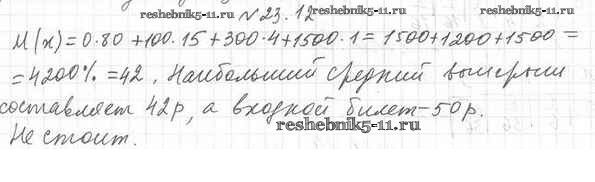 №23.12
M(x)=0·80+100·15+300·4+1500·1=1500+1200+1500=
=4200%=42. Наибольший средний выигрыш
составляет 42р, а входной билет-50р.
Не стоит.
reshebnik5-11.ru
reshebnik5-11.ru
reshebnik5-11.ru
reshebnik5-11.ru